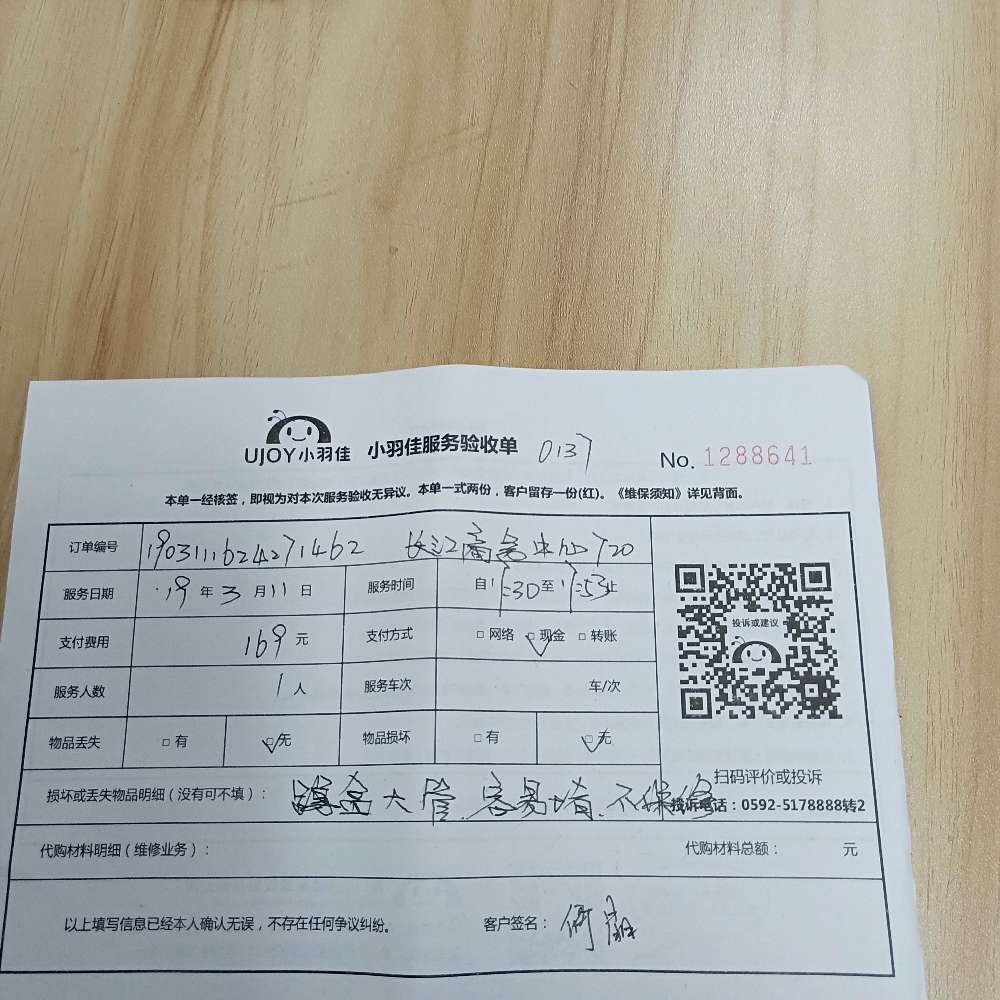 UJOY小羽佳 小羽佳服务验收单 0137 No. 1288641
本单一经核签，即视为对本次服务验收无异议。本单一式两份，客户留存一份(红)。《维保须知》详见背面。
订单编号 1903111624271462 长江商务中心720
服务日期 19 年 3 月 11 日 服务时间 自 17:30 至 17:53 止
支付费用 169 元 支付方式 □ 网络 □ 现金 □ 转账
投诉或建议
服务人数 1 人 服务车次 车/次
物品丢失 □ 有 □ 无 物品损坏 □ 有 □ 无
扫码评价或投诉
损坏或丢失物品明细（没有可不填）： 大管.容易堵.不保修
投诉电话：0592-5178888转2
代购材料明细（维修业务）： 代购材料总额： 元
以上填写信息已经本人确认无误，不存在任何争议纠纷。 客户签名：